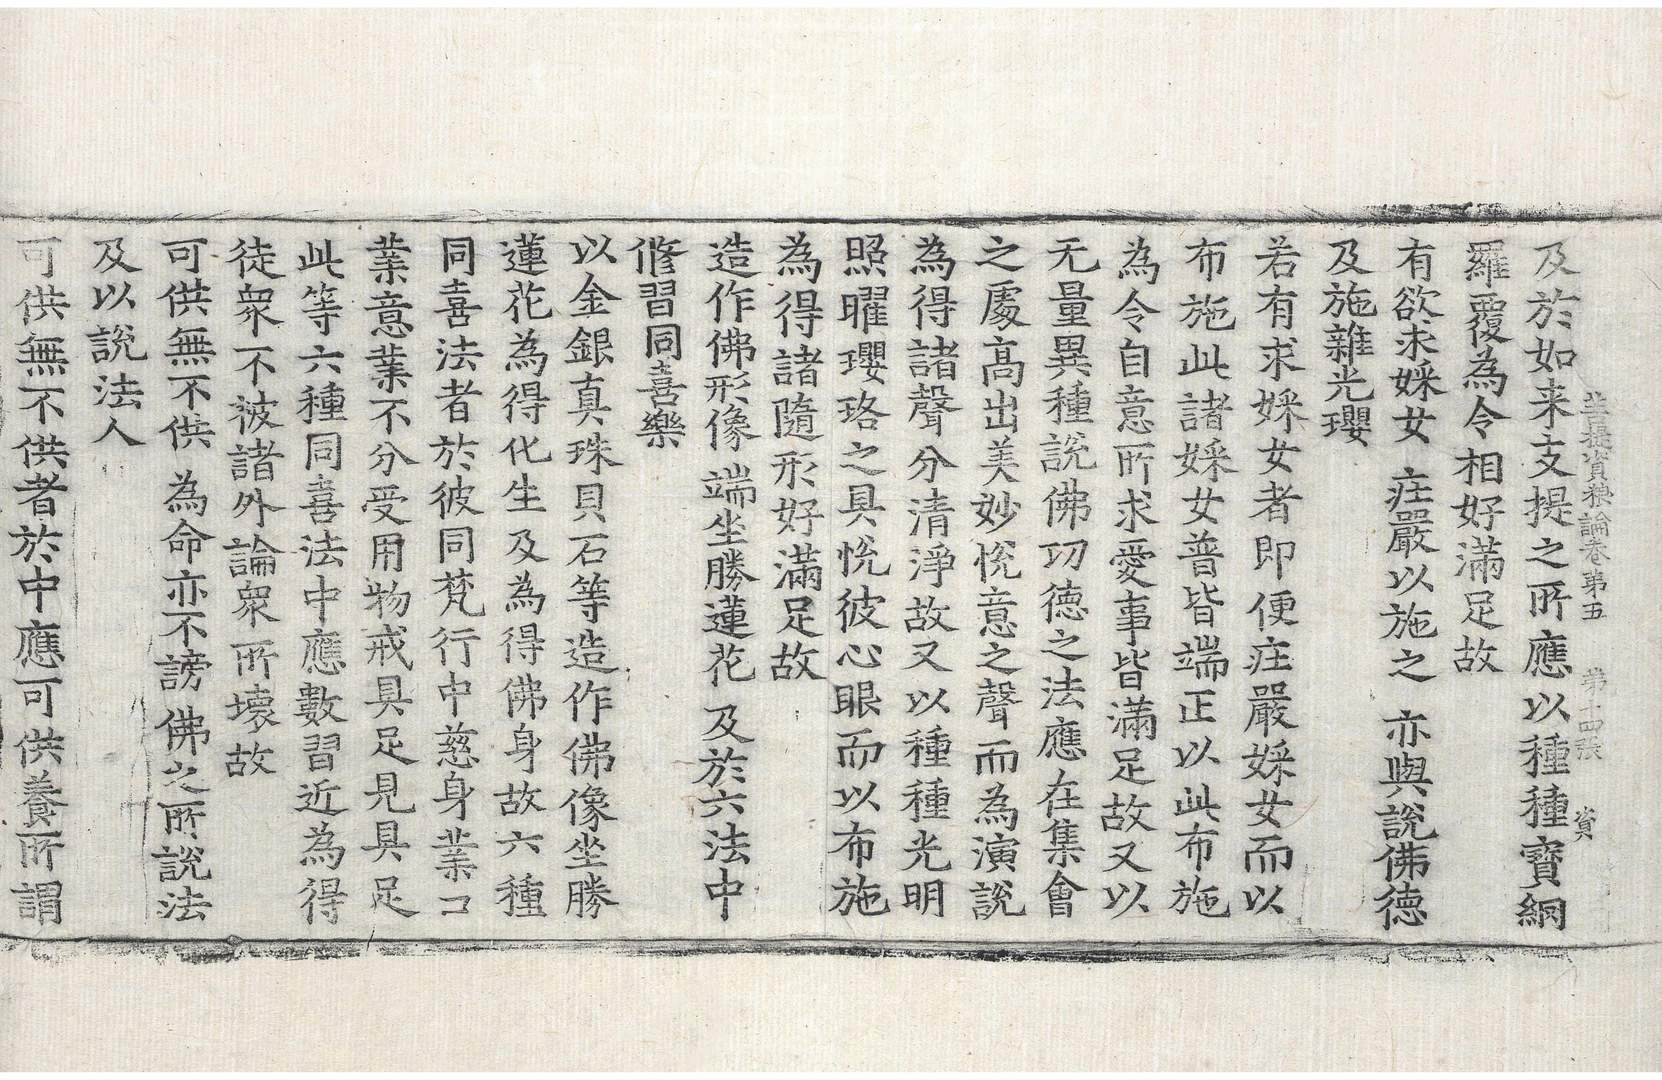 菩提資粮論卷第五　第十四張　資
及於如来支提之所應以種種寶網
羅覆為令相好滿足故
有欲求婇女　疰嚴以施之　亦與說佛德
及施雜光瓔
若有求婇女者即便疰嚴婇女而以
布施此諸婇女普皆端正以此布施
為令自意所求愛事皆滿足故又以
无量異種說佛功德之法應在集會
之處高出美妙悅意之聲而為演說
為得諸聲分清淨故又以種種光明
照曜瓔珞之具悅彼心眼而以布施
為得諸隨形好滿足故
造作佛形像　端坐勝蓮花　及於六法中
修習同喜樂
以金銀真珠貝石等造作佛像坐勝
蓮花為得化生及為得佛身故六種
同喜法者於彼同梵行中慈身業口
業意業不分受用物戒具足見具足
此等六種同喜法中應數習近為得
徒衆不被諸外論衆所壞故
可供無不供　為命亦不謗　佛之所說法
及以說法人
可供無不供者於中應可供養所謂